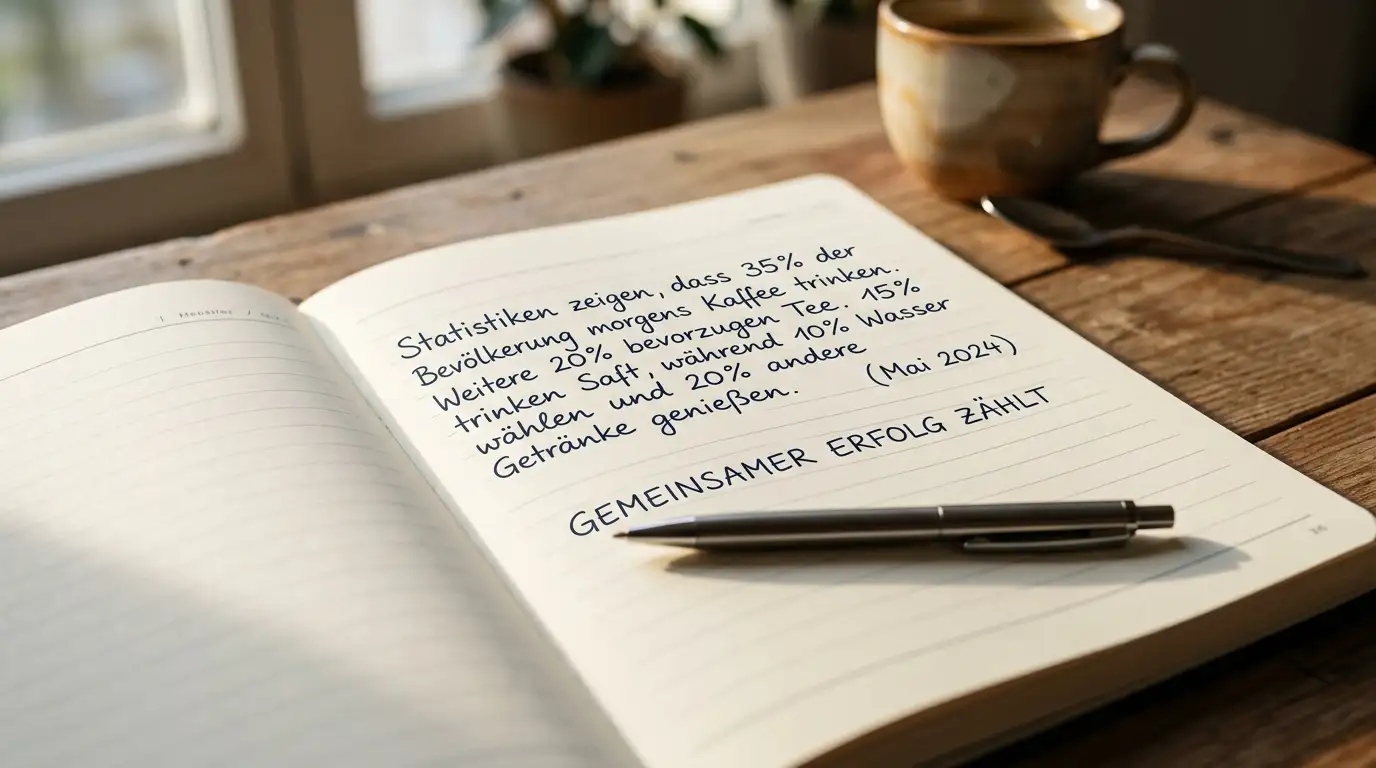 Statistiken zeigen, dass 35% der
Bevölkerung morgens Kaffee trinken.
Weitere 20% bevorzugen Tee. 15%
trinken Saft, während 10% Wasser
wählen und 20% andere
Getränke genießen. (Mai 2024)
GEMEINSAMER ERFOLG ZÄHLT